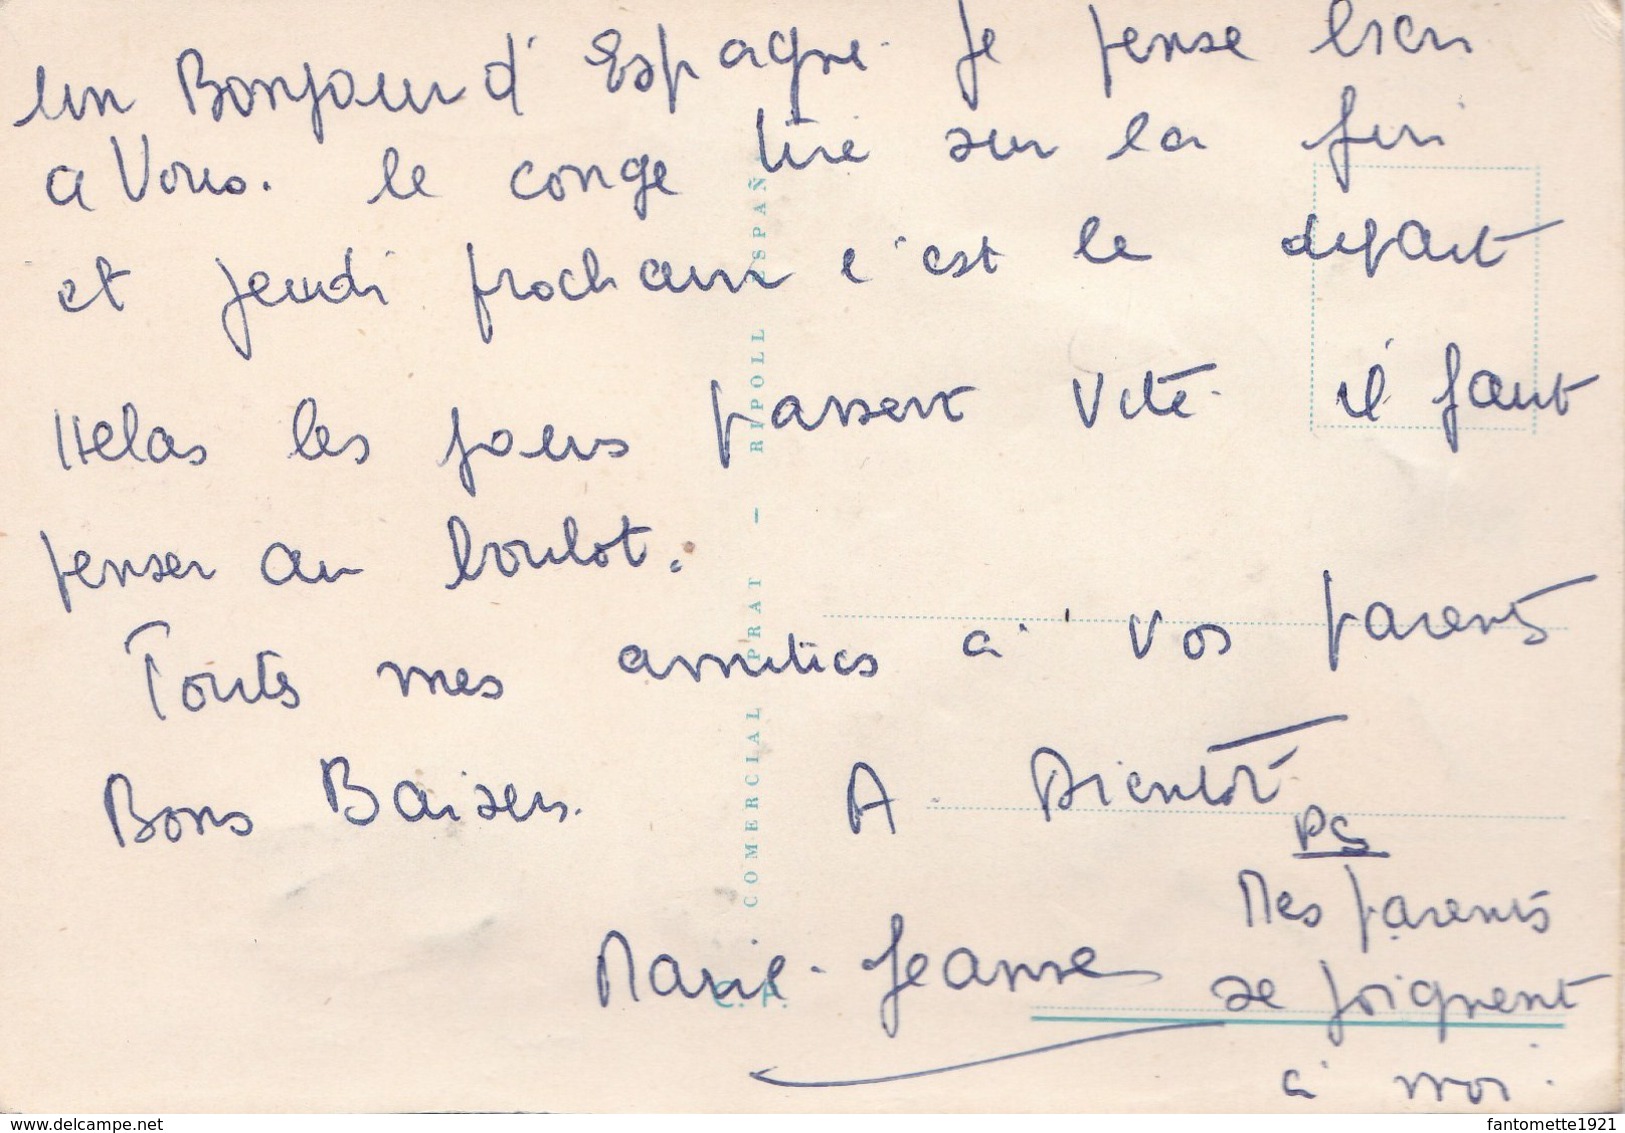 Un Bonjour d'Espagne. Je pense bien
a Vous. le conge tire sur la fin
et jeudi prochain c'est le depart
Helas les jours passent vite. il faut
penser au boulot.
Toutes mes amities a vos parents
Bons Baisers. A Bientôt
Marie-Jeanne
PS
Mes parents
se joignent
a moi.
COMERCIAL PRAT - RIPOLL ESPAÑ
delcampe.net
fantomette1921